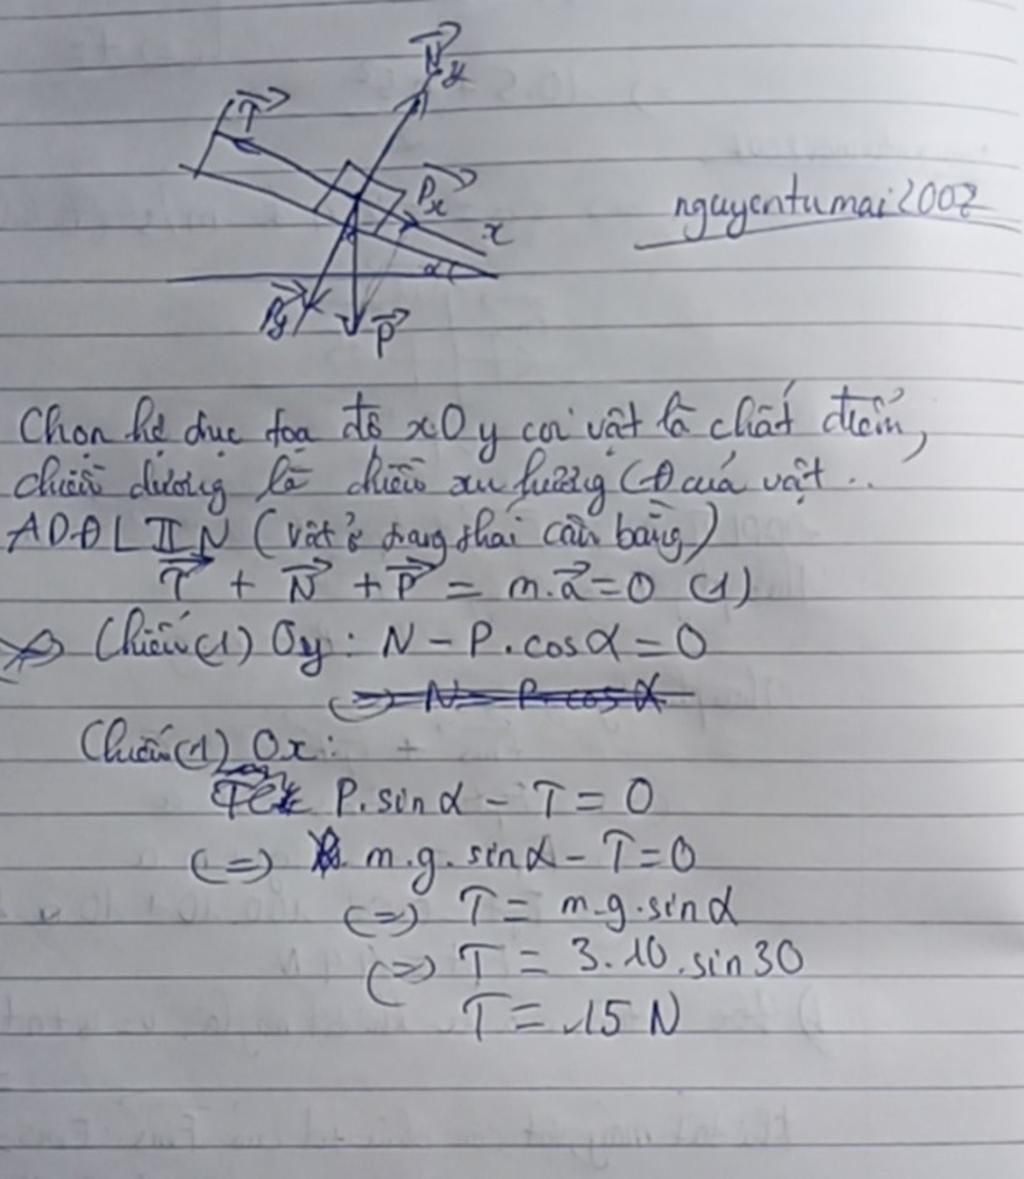 N⃗
y
T⃗
Pₓ⃗
x
nguyentumai2002
α
Py⃗
P⃗
Chọn hệ trục tọa độ xOy coi vật là chất điểm,
chiều dương là chiều xu hướng (+) của vật..
ADĐL II N (vật ở trạng thái cân bằng)
T⃗ + N⃗ + P⃗ = m.a⃗ = 0 (1)
Chiếu (1) Oy: N - P.cosα = 0
(=) N = P.cosα
Chiếu (1) Ox:
P.sinα - T = 0
(=) m.g.sinα - T = 0
(=) T = m.g.sinα
(=) T = 3.10.sin30
T = 15 N